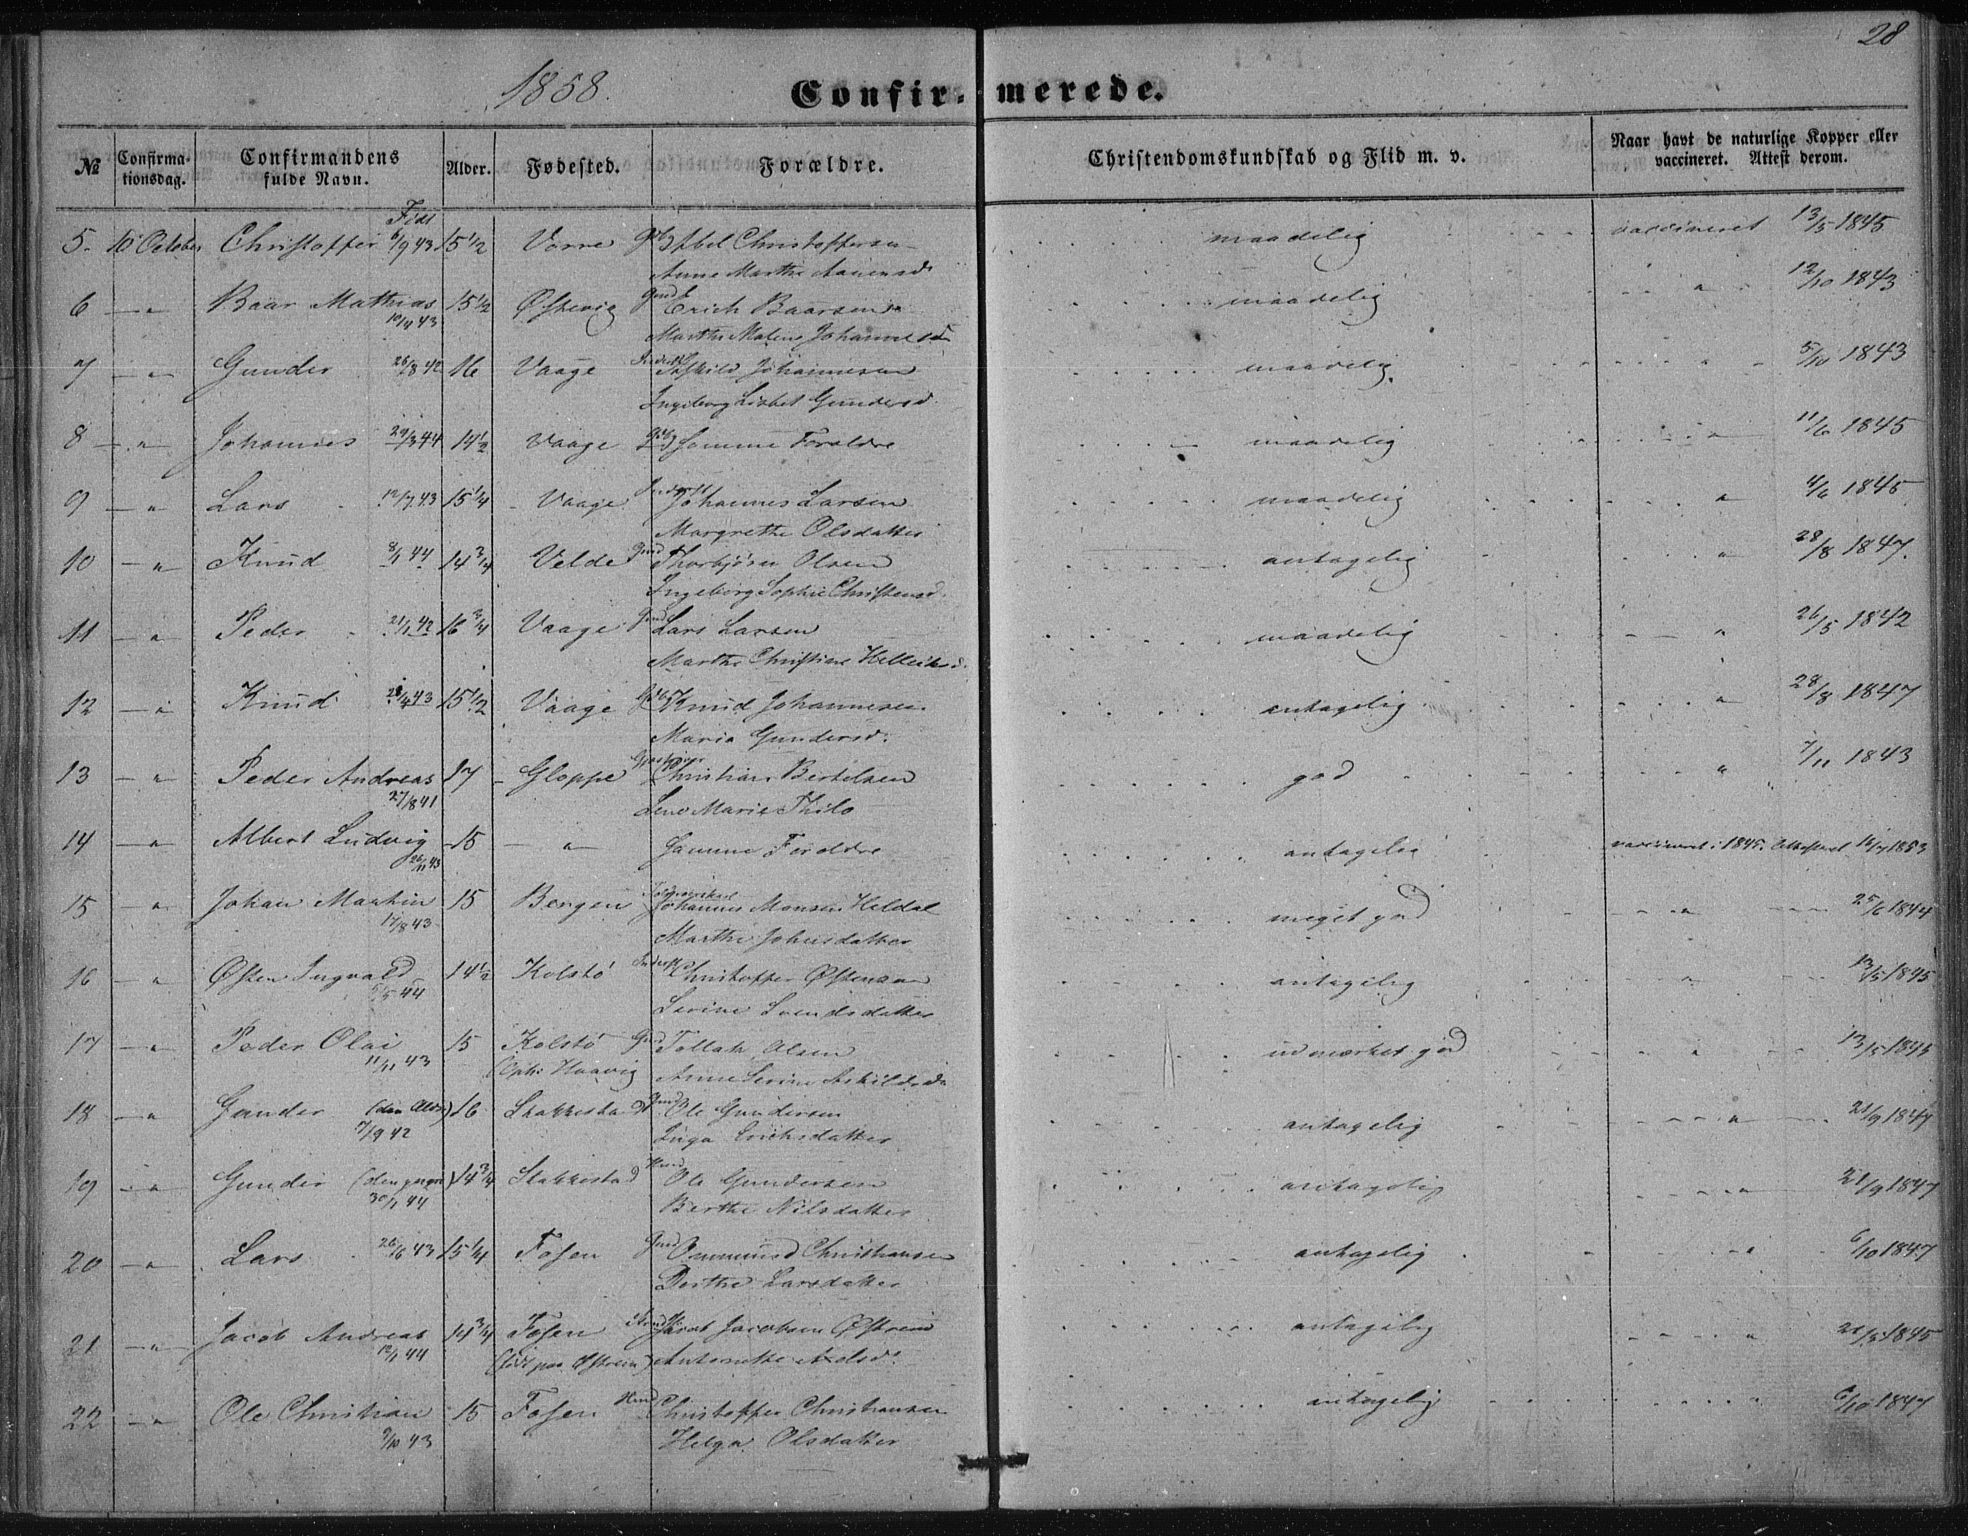 28
1858.
Confirmerede.
№ Confirmationsdag. Confirmandens fulde Navn. Alder. Fødested. Forældre. Christendomskundskab og Flid m. v. Naar havt de naturlige Kopper eller vaccineret. Attest derom.
5. 10 October Christoffer Født 6/9 43 15 1/2 Vorre Abel Christoffersen maadelig vaccineret 13/5 1845
Anne Marthe
6 — " Baar Mathias 15 1/2 Østevig Gmd Erich Baarsen maadelig " 12/10 1843
43 Marthe Malene Johannesd
7 — " Gunder 26/8 42 16 Vaage Johannesen maadelig " 5/10 1843
Ingeborg Lisbet Gundersd.
8 — " Johannes 29/3 44 14 1/2 Vaage Samme Foraldre maadelig " 11/6 1845
9 — " Lars 12/7 43 15 1/4 Vaage Johannes Larsen maadelig " 4/6 1845
Margrethe Olsdatter
10 — " Knud 8/1 44 14 3/4 Velde Gmd Thorbjørn Olsen antagelig " 28/8 1847.
Ingeborg Sophie Christensd.
11 — " Peder 21/1 42 16 3/4 Vaage Gmd Lars Larsen maadelig " 26/5 1842
Marthe Christine
12 — " Knud 43 15 1/2 Vaage Knud Johannesen antagelig " 28/8 1847
Maria Gundersd.
13 — " Peder Andreas 17 Gloppe Christian Bertelsen god " 7/11 1843
27/8 41 Lene Marie Thilo
14 — " Albert Ludvig 15 — " Samme Forældre antagelig vaccineret i 1845. 1853
26/11 43
15 — " Johan Marthin 15 Bergen Johannes Monsen Heldal meget god " 25/6 1844
17/8 43 Marthe Johnsdatter
16 — " Østen Ingvald 14 1/2 Kolstø Christoffer Østensen antagelig " 13/5 1845
5/5 44 Serine Svendsdatter
17 — " Peder Olai 15 Kolstø Gmd Tollak Olsen udmærket god " 13/5 1845
11/11 43 Haavig Anne Serine Askildsd
18 — " Gunder (den Aldre) 16 Stakkestad Gmd Ole Gundersen antagelig " 21/9 1847
7/9 42 Inga Erichsdatter
19 — " Gunder (den yngre) 14 3/4 Stakkestad Huusmd Ole Gundersen antagelig " 21/9 1847
30/1 44 Berthe Nilsdatter
20 — " Lars 26/6 43 15 1/4 Fosen Gmd Ommund Christiansen antagelig " 6/10 1847
Berthe Larsdatter
21 — " Jacob Andreas 14 3/4 Fosen Jacob Jacobsen Østrem antagelig " 1845
12/1 44 (født paa Østrem) Antonette
22 — " Ole Christian 15 Fosen Christoffer Christiansen antagelig " 6/10 1847
9/10 43 Helga Olsdatter